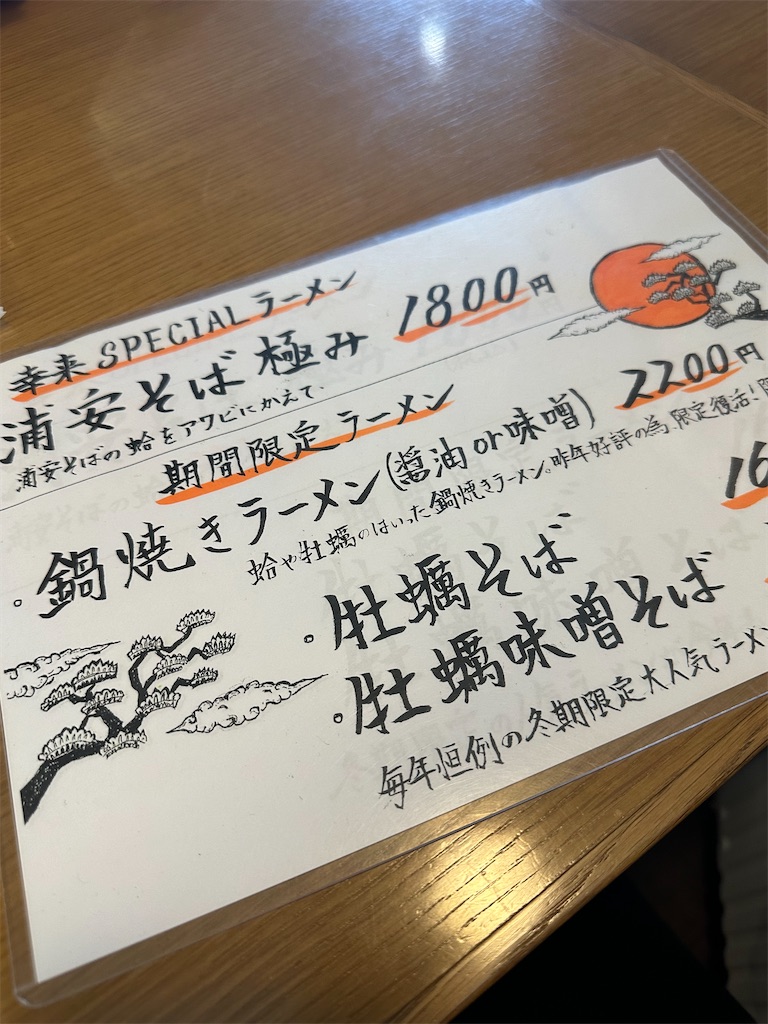 幸来 SPECIALラーメン
浦安そば 極み 1800円
浦安そばの蛤をアワビにかえて、
期間限定ラーメン
・鍋焼きラーメン(醤油or味噌) 2200円
蛤や牡蠣のはいった鍋焼きラーメン。昨年好評の為、限定復活!
・牡蠣そば 16
・牡蠣味噌そば
毎年恒例の冬期限定大人気ラーメン